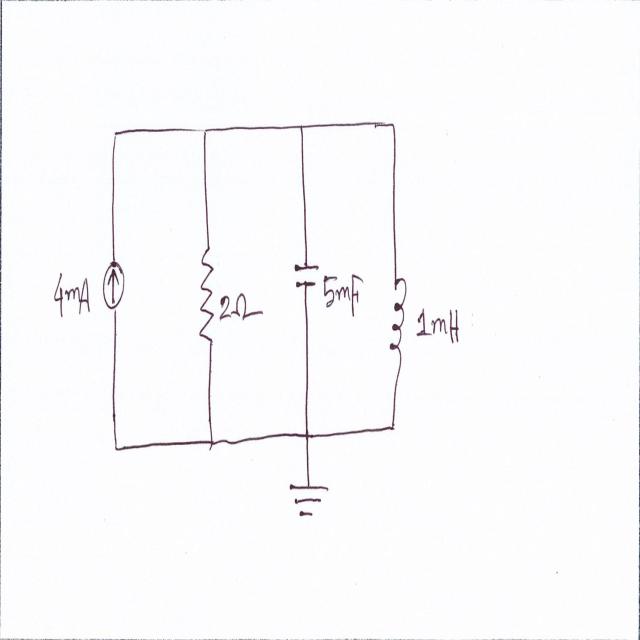 4mA
2Ω
5mF
1mH